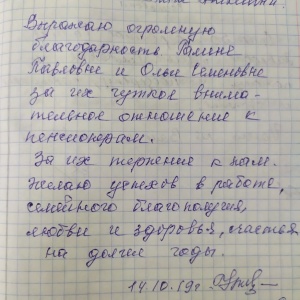 Выражаю огромную
благодарность Галине
Павловне и Ольге Семеновне
за их чуткое внима-
тельное отношение к
пенсионерам.
За их терпение к нам.
Желаю успехов в работе,
семейного благополучия,
любви и здоровья, счастья
на долгие годы.
14.10.19г.